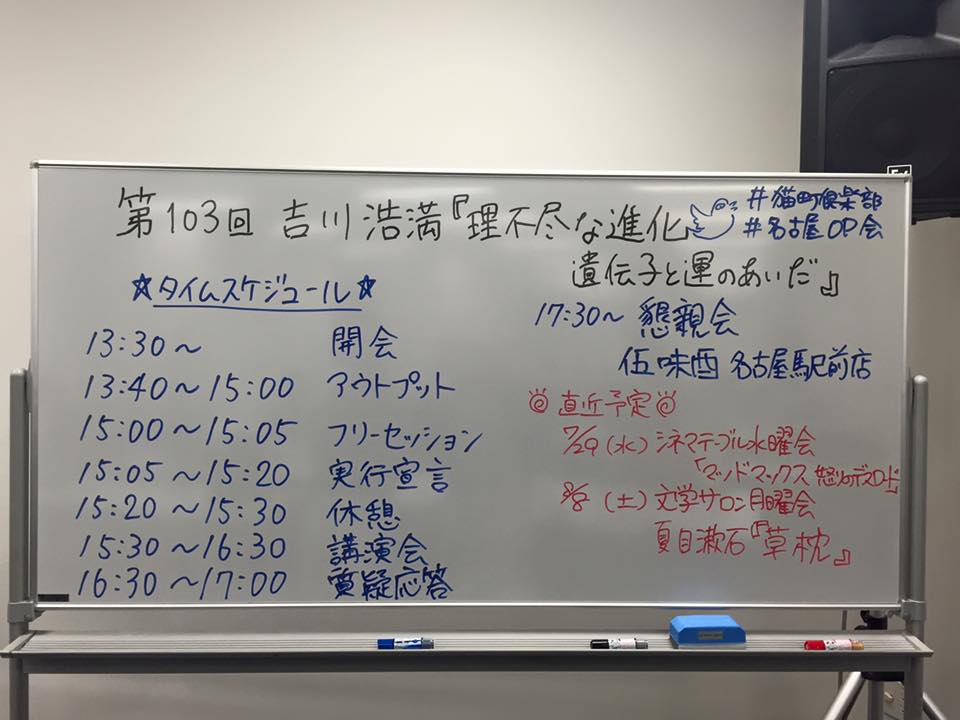 第103回 吉川浩満『理不尽な進化
遺伝子と運のあいだ』
#猫町倶楽部
#名古屋OP会
☆タイムスケジュール☆
13:30〜 開会
13:40〜15:00 アウトプット
15:00〜15:05 フリーセッション
15:05〜15:20 実行宣言
15:20〜15:30 休憩
15:30〜16:30 講演会
16:30〜17:00 質疑応答
17:30〜 懇親会
伍味酉 名古屋駅前店
直近予定
7/29(水)シネマテーブル水曜会
「マッドマックス 怒りのデスロード」
8/8(土)文学サロン月曜会
夏目漱石『草枕』